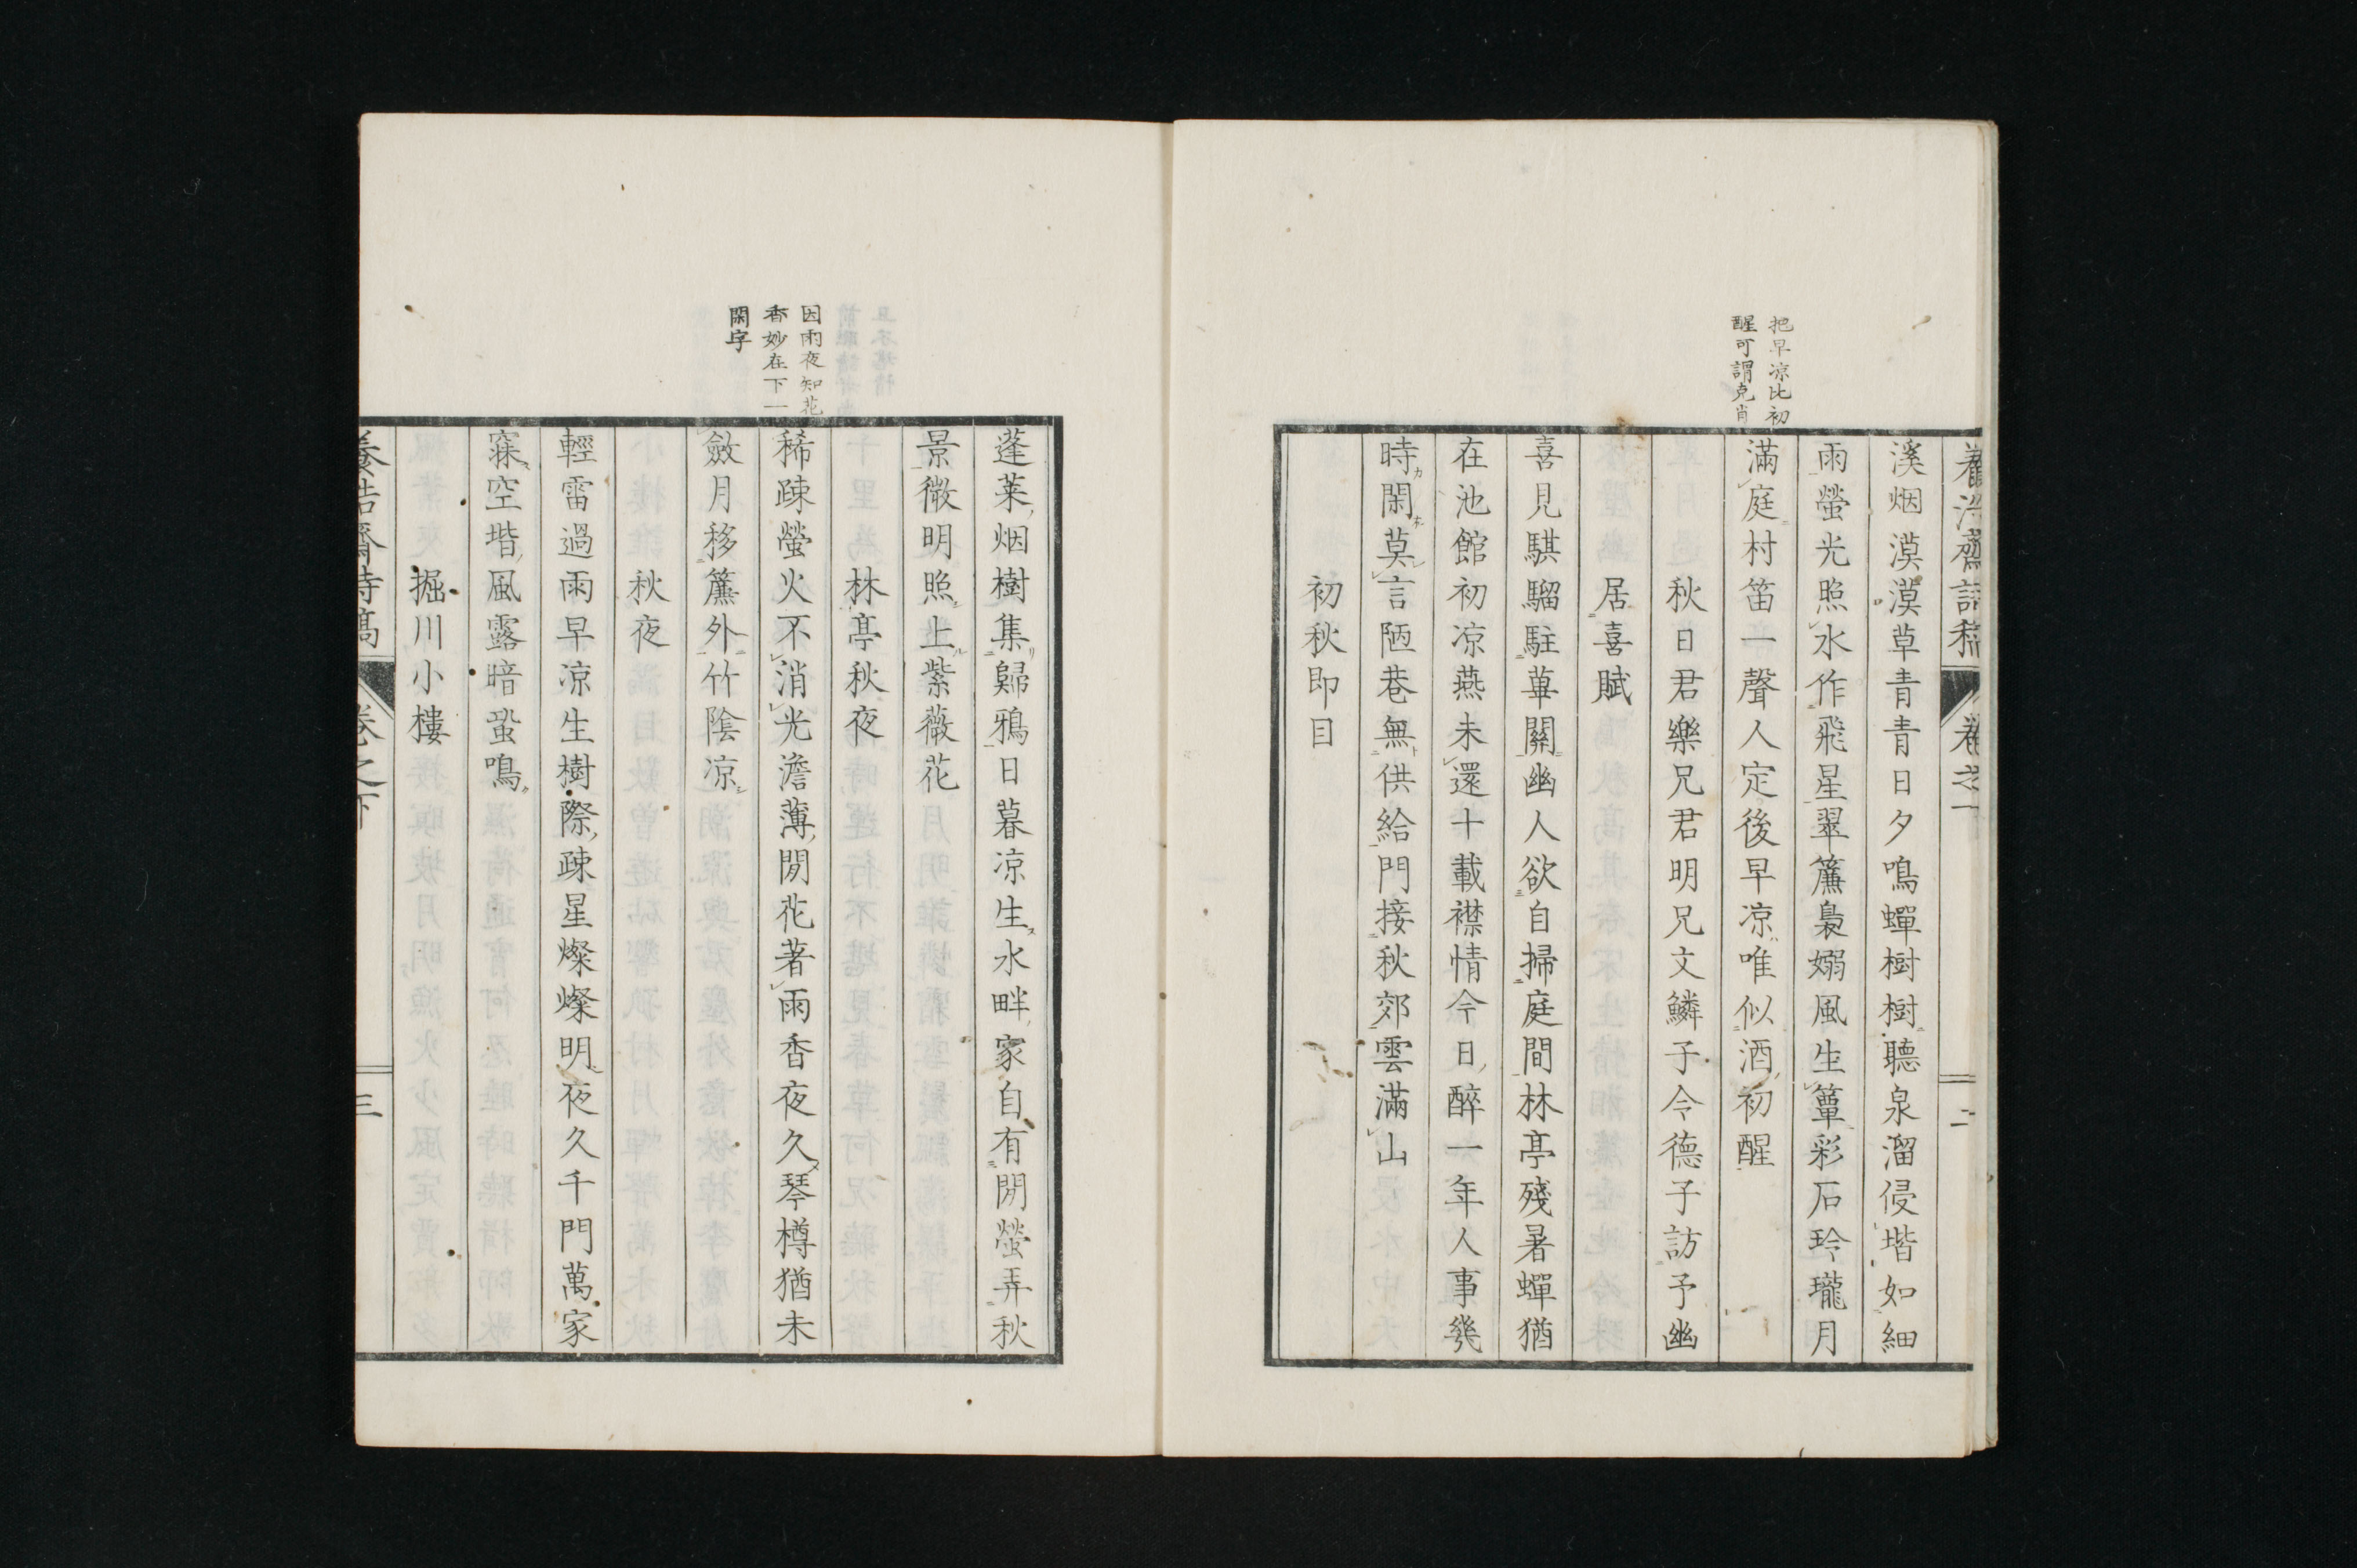 養浩齋詩稿 卷之下 二
把早凉比初
醒可謂克肖
溪烟漠漠草青青日夕鳴蟬樹樹聽泉溜侵堦如細
雨螢光照水作飛星翠簾裊嫋風生簟彩石玲瓏月
滿庭村笛一聲人定後早凉唯似酒初醒
秋日君樂兄君明兄文鱗子令德子訪予幽
居喜賦
喜見騏騮駐蓽關幽人欲自掃庭間林亭殘暑蟬猶
在池館初凉燕未還十載襟情今日醉一年人事幾
時閑莫言陋巷無供給門接秋郊雲滿山
初秋即目
蓬萊烟樹集歸鴉日暮凉生水畔家自有閒螢弄秋
景微明照上紫薇花
林亭秋夜
因雨夜知花
香妙在下一
閑字
稀疎螢火不消光澹薄閒花著雨香夜久琴樽猶未
斂月移簾外竹陰凉
秋夜
輕雷過雨早凉生樹際疎星燦燦明夜久千門萬家
寐空堦風露暗蛩鳴
掘川小樓
養浩齋詩稿 卷之下 三